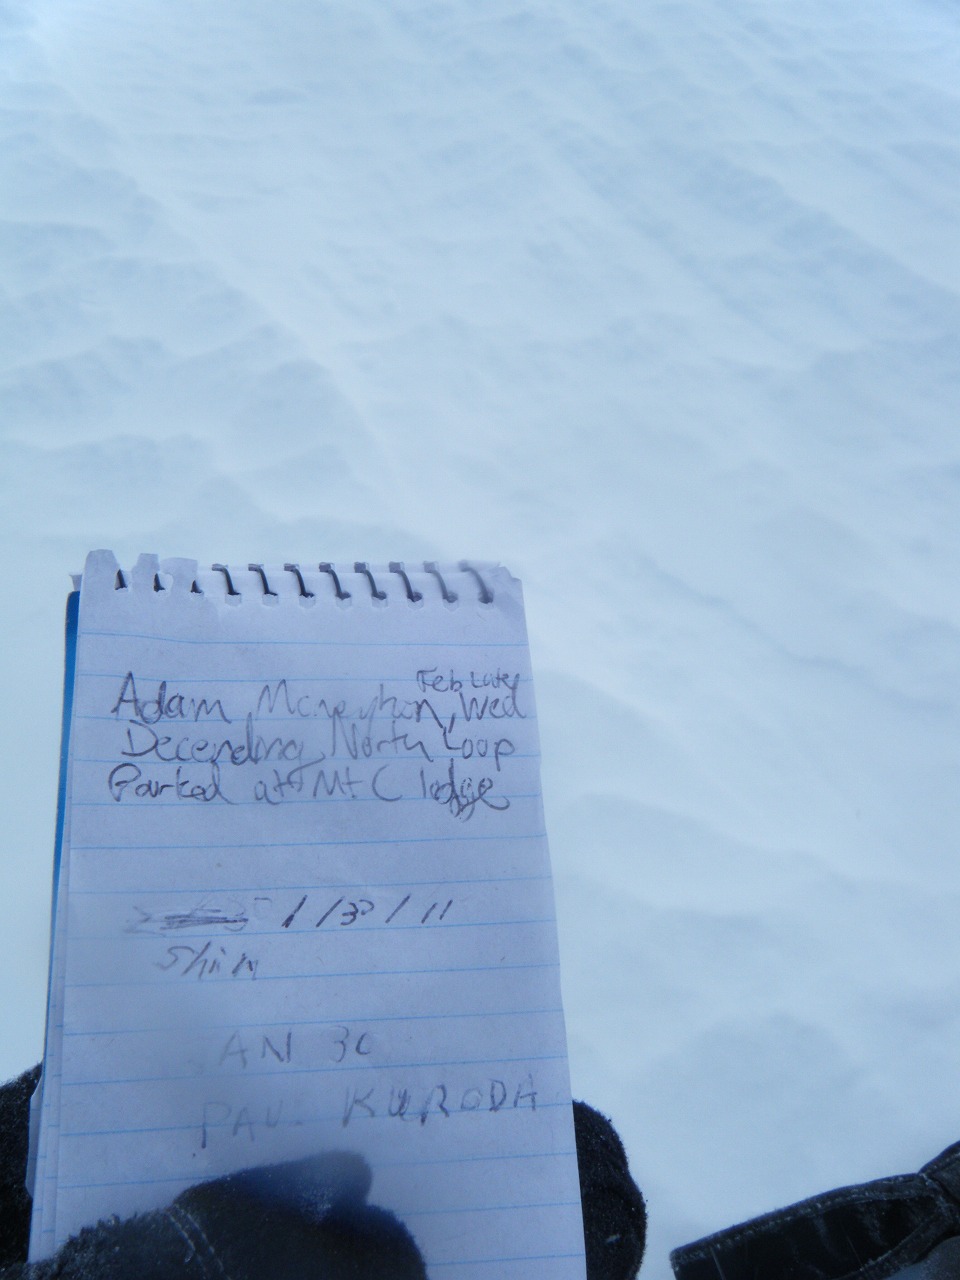 Feb Late
Adam Mcneyhon, Wed
Decending North Loop
Parked at Mt C lodge
1/30/11
Shim
AN 30
PAUL KURODA